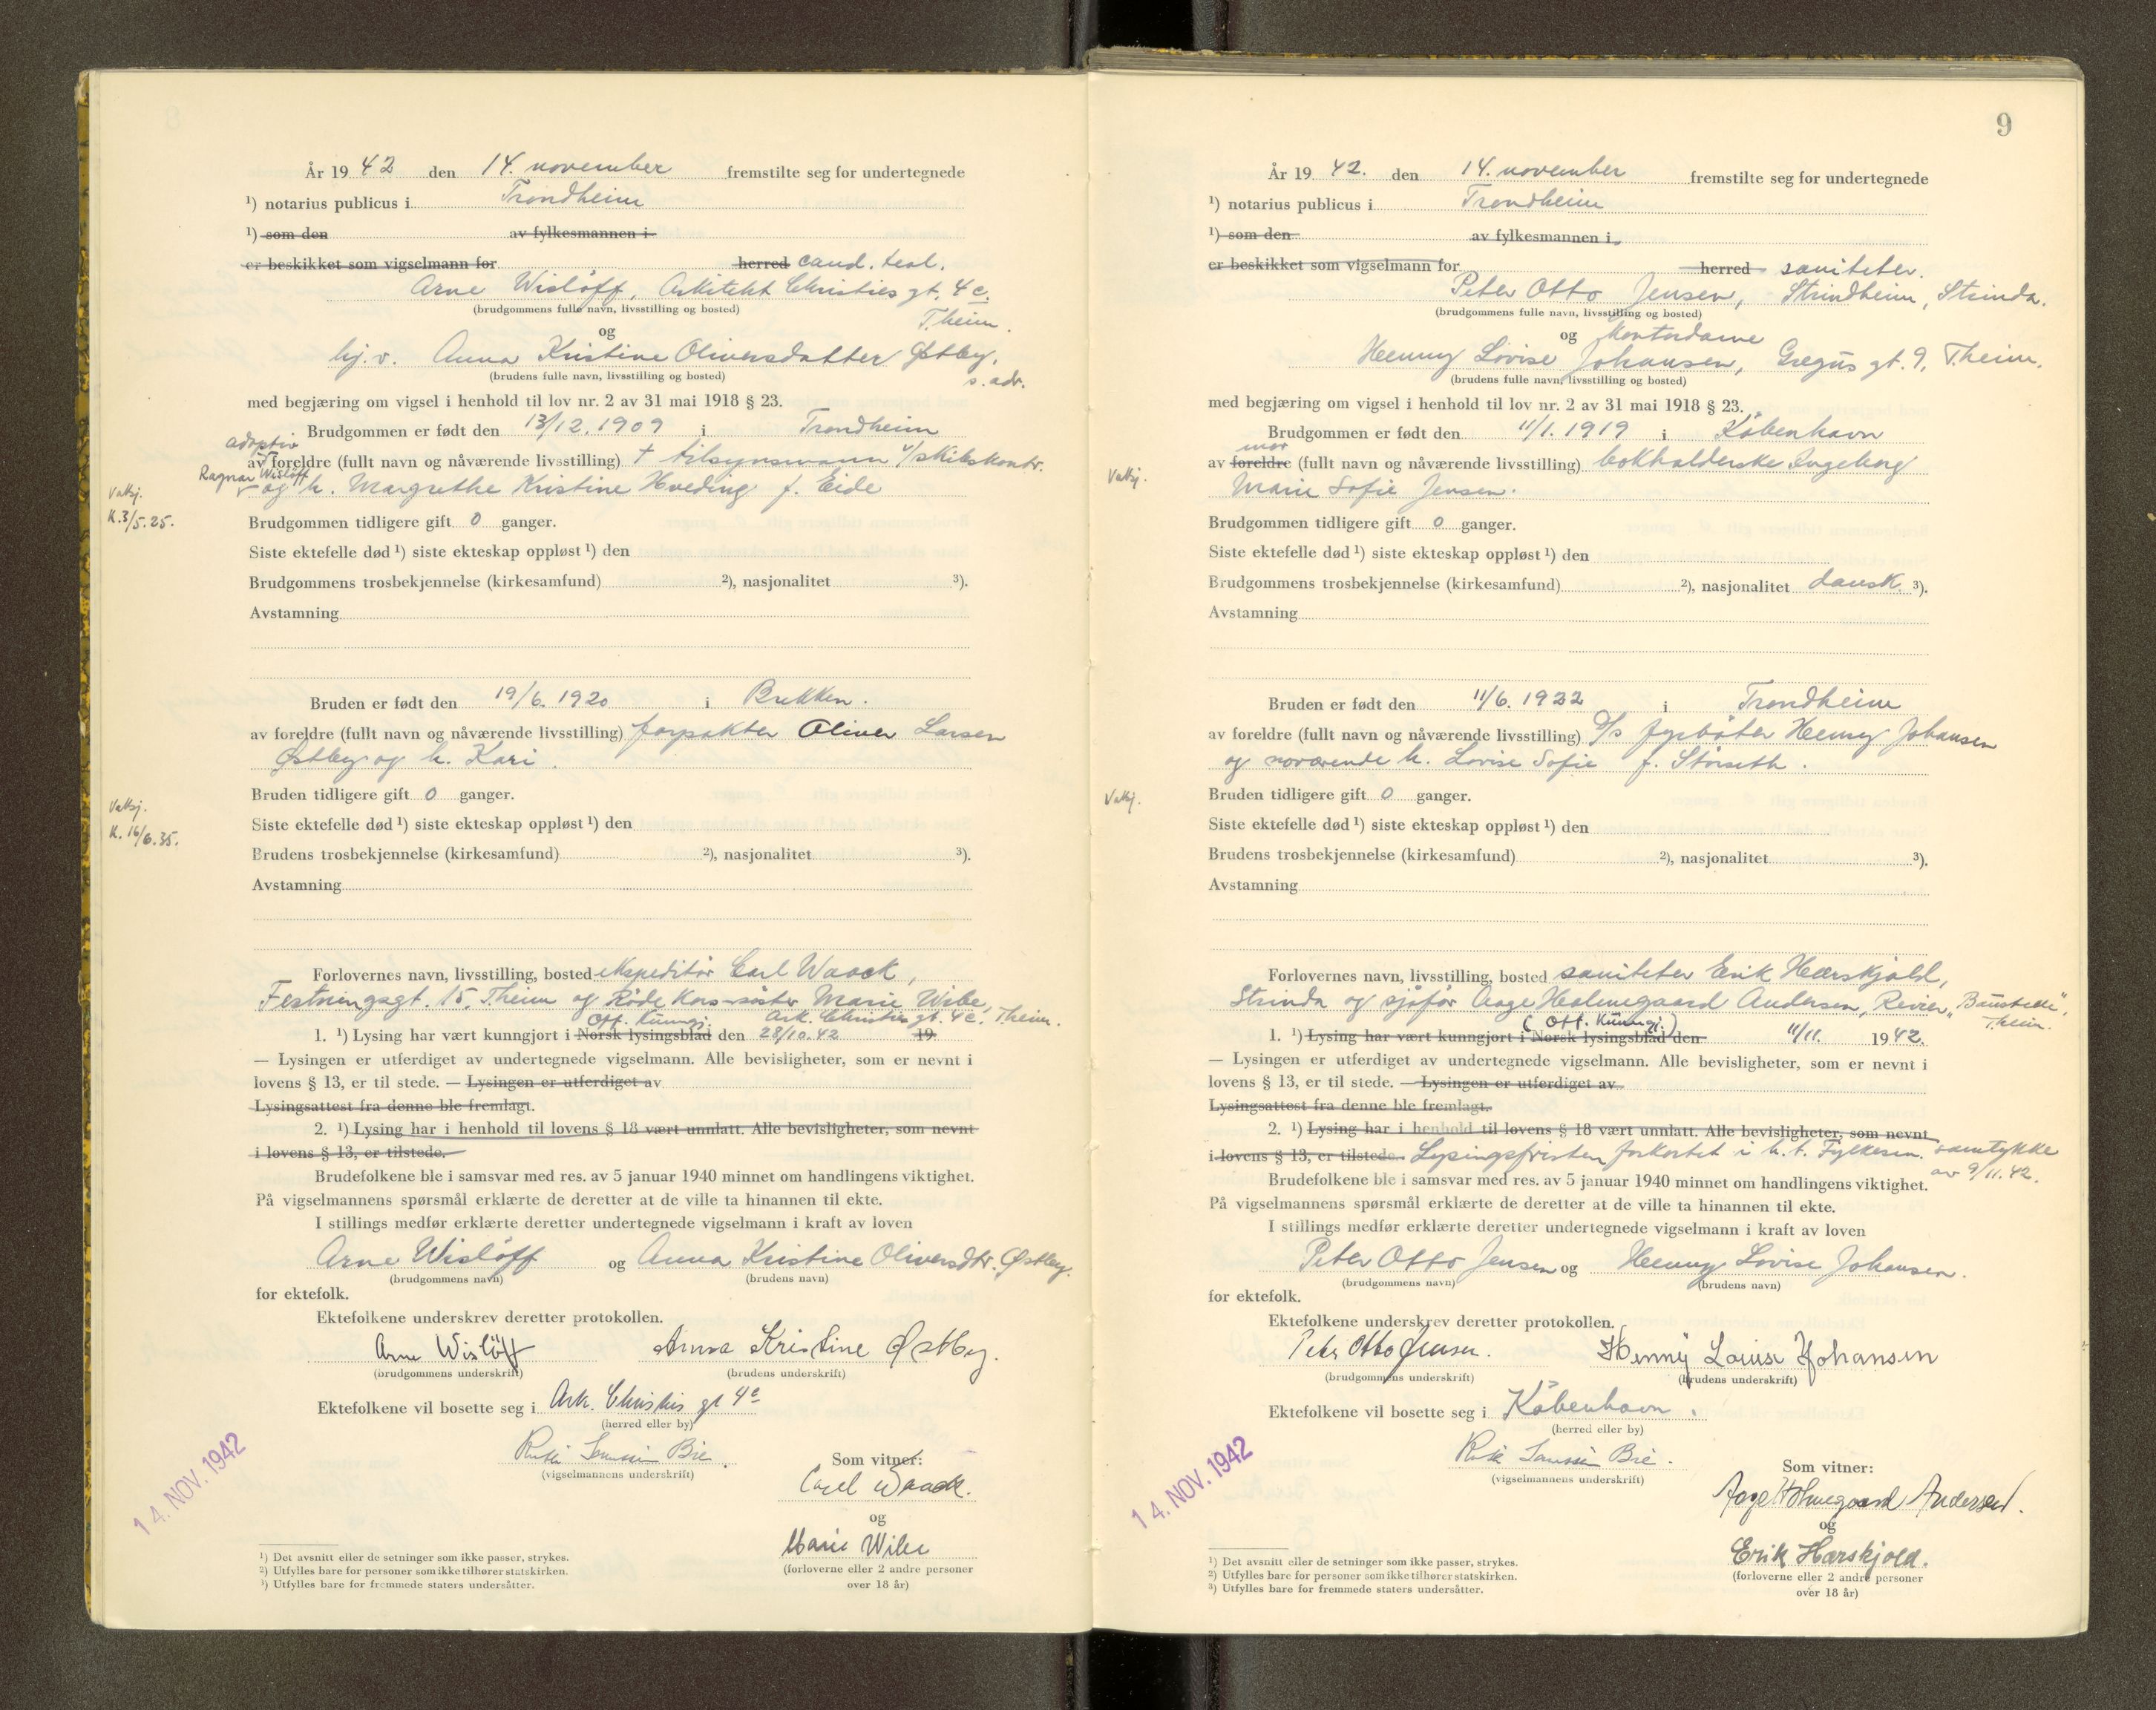 År 19 42 den 14. november fremstilte seg for undertegnede
¹) notarius publicus i Trondheim
¹) som den av fylkesmannen i
er beskikket som vigselmann for herred cand. teol.
Arne Wislöff, Arkitekt Christies gt. 4 c.
(brudgommens fulle navn, livsstilling og bosted)
T.heim.
og
hj.v. Anna Kristine Oliversdatter Østby,
(brudens fulle navn, livsstilling og bosted)
s. adr.
med begjæring om vigsel i henhold til lov nr. 2 av 31 mai 1918 § 23.
Brudgommen er født den 13/12. 1909 i Trondheim
adoptiv
av foreldre (fullt navn og nåværende livsstilling) † tilsynsmann v/skibskontr.
Ragnar Wislöff
og h. Margrethe Kristine Hveding f. Eide
Vaksj.
K. 3/5.25.
Brudgommen tidligere gift 0 ganger.
Siste ektefelle død ¹) siste ekteskap oppløst ¹) den
Brudgommens trosbekjennelse (kirkesamfund) ²), nasjonalitet ³).
Avstamning
Bruden er født den 19/6. 1920 i Brekken.
av foreldre (fullt navn og nåværende livsstilling) forpakter Oliver Larsen
Østby og h. Kari.
Bruden tidligere gift 0 ganger.
Vaksj.
K. 16/6.35.
Siste ektefelle død ¹) siste ekteskap oppløst ¹) den
Brudens trosbekjennelse (kirkesamfund) ²), nasjonalitet ³).
Avstamning
Forlovernes navn, livsstilling, bosted ekspeditör Carl Waack,
Festningsgt. 15, T.heim og Röde Kors-söster Marie Wibe,
Off. Kunngj. Ark. Christies gt. 4c. T.heim.
1. ¹) Lysing har vært kunngjort i Norsk lysingsblad den 28/10.42 19
— Lysingen er utferdiget av undertegnede vigselmann. Alle bevisligheter, som er nevnt i
lovens § 13, er til stede. — Lysingen er utferdiget av
Lysingsattest fra denne ble fremlagt.
2. ¹) Lysing har i henhold til lovens § 18 vært unnlatt. Alle bevisligheter, som nevnt
i lovens § 13, er tilstede.
Brudefolkene ble i samsvar med res. av 5 januar 1940 minnet om handlingens viktighet.
På vigselmannens spørsmål erklærte de deretter at de ville ta hinannen til ekte.
I stillings medfør erklærte deretter undertegnede vigselmann i kraft av loven
Arne Wislöff og Anna Kristine Oliversdtr. Østby.
(brudgommens navn) (brudens navn)
for ektefolk.
Ektefolkene underskrev deretter protokollen.
Arne Wislöff Anna Kristine Østby.
(brudgommens underskrift) (brudens underskrift)
Ektefolkene vil bosette seg i Ark. Christies gt 4c
(herred eller by)
(vigselmannens underskrift)
Som vitner:
Carl Waack.
og
Marie Wibe
(forloverne eller 2 andre personer
over 18 år)
14. NOV. 1942
¹) Det avsnitt eller de setninger som ikke passer, strykes.
²) Utfylles bare for personer som ikke tilhører statskirken.
³) Utfylles bare for fremmede staters undersåtter.
9
År 19 42. den 14. november fremstilte seg for undertegnede
¹) notarius publicus i Trondheim
¹) som den av fylkesmannen i
er beskikket som vigselmann for herred saniteter.
Peter Otto Jensen, Strindheim, Strinda.
(brudgommens fulle navn, livsstilling og bosted)
og Kontordame
Henny Lovise Johansen, Gregus gt. 9, T.heim.
(brudens fulle navn, livsstilling og bosted)
med begjæring om vigsel i henhold til lov nr. 2 av 31 mai 1918 § 23.
Brudgommen er født den 11/1. 1919 i København
mor
av foreldre (fullt navn og nåværende livsstilling) bokholderske Ingeborg
Vaksj.
Marie Sofie Jensen.
Brudgommen tidligere gift 0 ganger.
Siste ektefelle død ¹) siste ekteskap oppløst ¹) den
Brudgommens trosbekjennelse (kirkesamfund) ²), nasjonalitet dansk. ³).
Avstamning
Bruden er født den 11/6. 1922 i Trondheim
av foreldre (fullt navn og nåværende livsstilling) D/s fyrböter Henny Johansen
og noværende h. Lovise Sofie f. Störseth.
Bruden tidligere gift 0 ganger.
Vaksj.
Siste ektefelle død ¹) siste ekteskap oppløst ¹) den
Brudens trosbekjennelse (kirkesamfund) ²), nasjonalitet ³).
Avstamning
Forlovernes navn, livsstilling, bosted saniteter Erik Hærskjold,
Strinda og sjåför Aage Holmegaard Andersen, Revier
T.heim.
(Off. Kunngj.)
1. ¹) Lysing har vært kunngjort i Norsk lysingsblad den 11/11. 1942.
— Lysingen er utferdiget av undertegnede vigselmann. Alle bevisligheter, som er nevnt i
lovens § 13, er til stede. — Lysingen er utferdiget av
Lysingsattest fra denne ble fremlagt.
2. ¹) Lysing har i henhold til lovens § 18 vært unnlatt. Alle bevisligheter, som nevnt
i lovens § 13, er tilstede. Lysingsfristen forkortet i h. t. Fylkesm. samtykke
av 9/11.42.
Brudefolkene ble i samsvar med res. av 5 januar 1940 minnet om handlingens viktighet.
På vigselmannens spørsmål erklærte de deretter at de ville ta hinannen til ekte.
I stillings medfør erklærte deretter undertegnede vigselmann i kraft av loven
Peter Otto Jensen og Henny Lovise Johansen.
(brudgommens navn) (brudens navn)
for ektefolk.
Ektefolkene underskrev deretter protokollen.
Peter Otto Jensen. Henny Louise Johansen
(brudgommens underskrift) (brudens underskrift)
Ektefolkene vil bosette seg i København.
(herred eller by)
(vigselmannens underskrift)
Som vitner:
Aage Holmegaard Andersen.
og
Erik Hærskjold.
(forloverne eller 2 andre personer
over 18 år)
14. NOV. 1942
¹) Det avsnitt eller de setninger som ikke passer, strykes.
²) Utfylles bare for personer som ikke tilhører statskirken.
³) Utfylles bare for fremmede staters undersåtter.